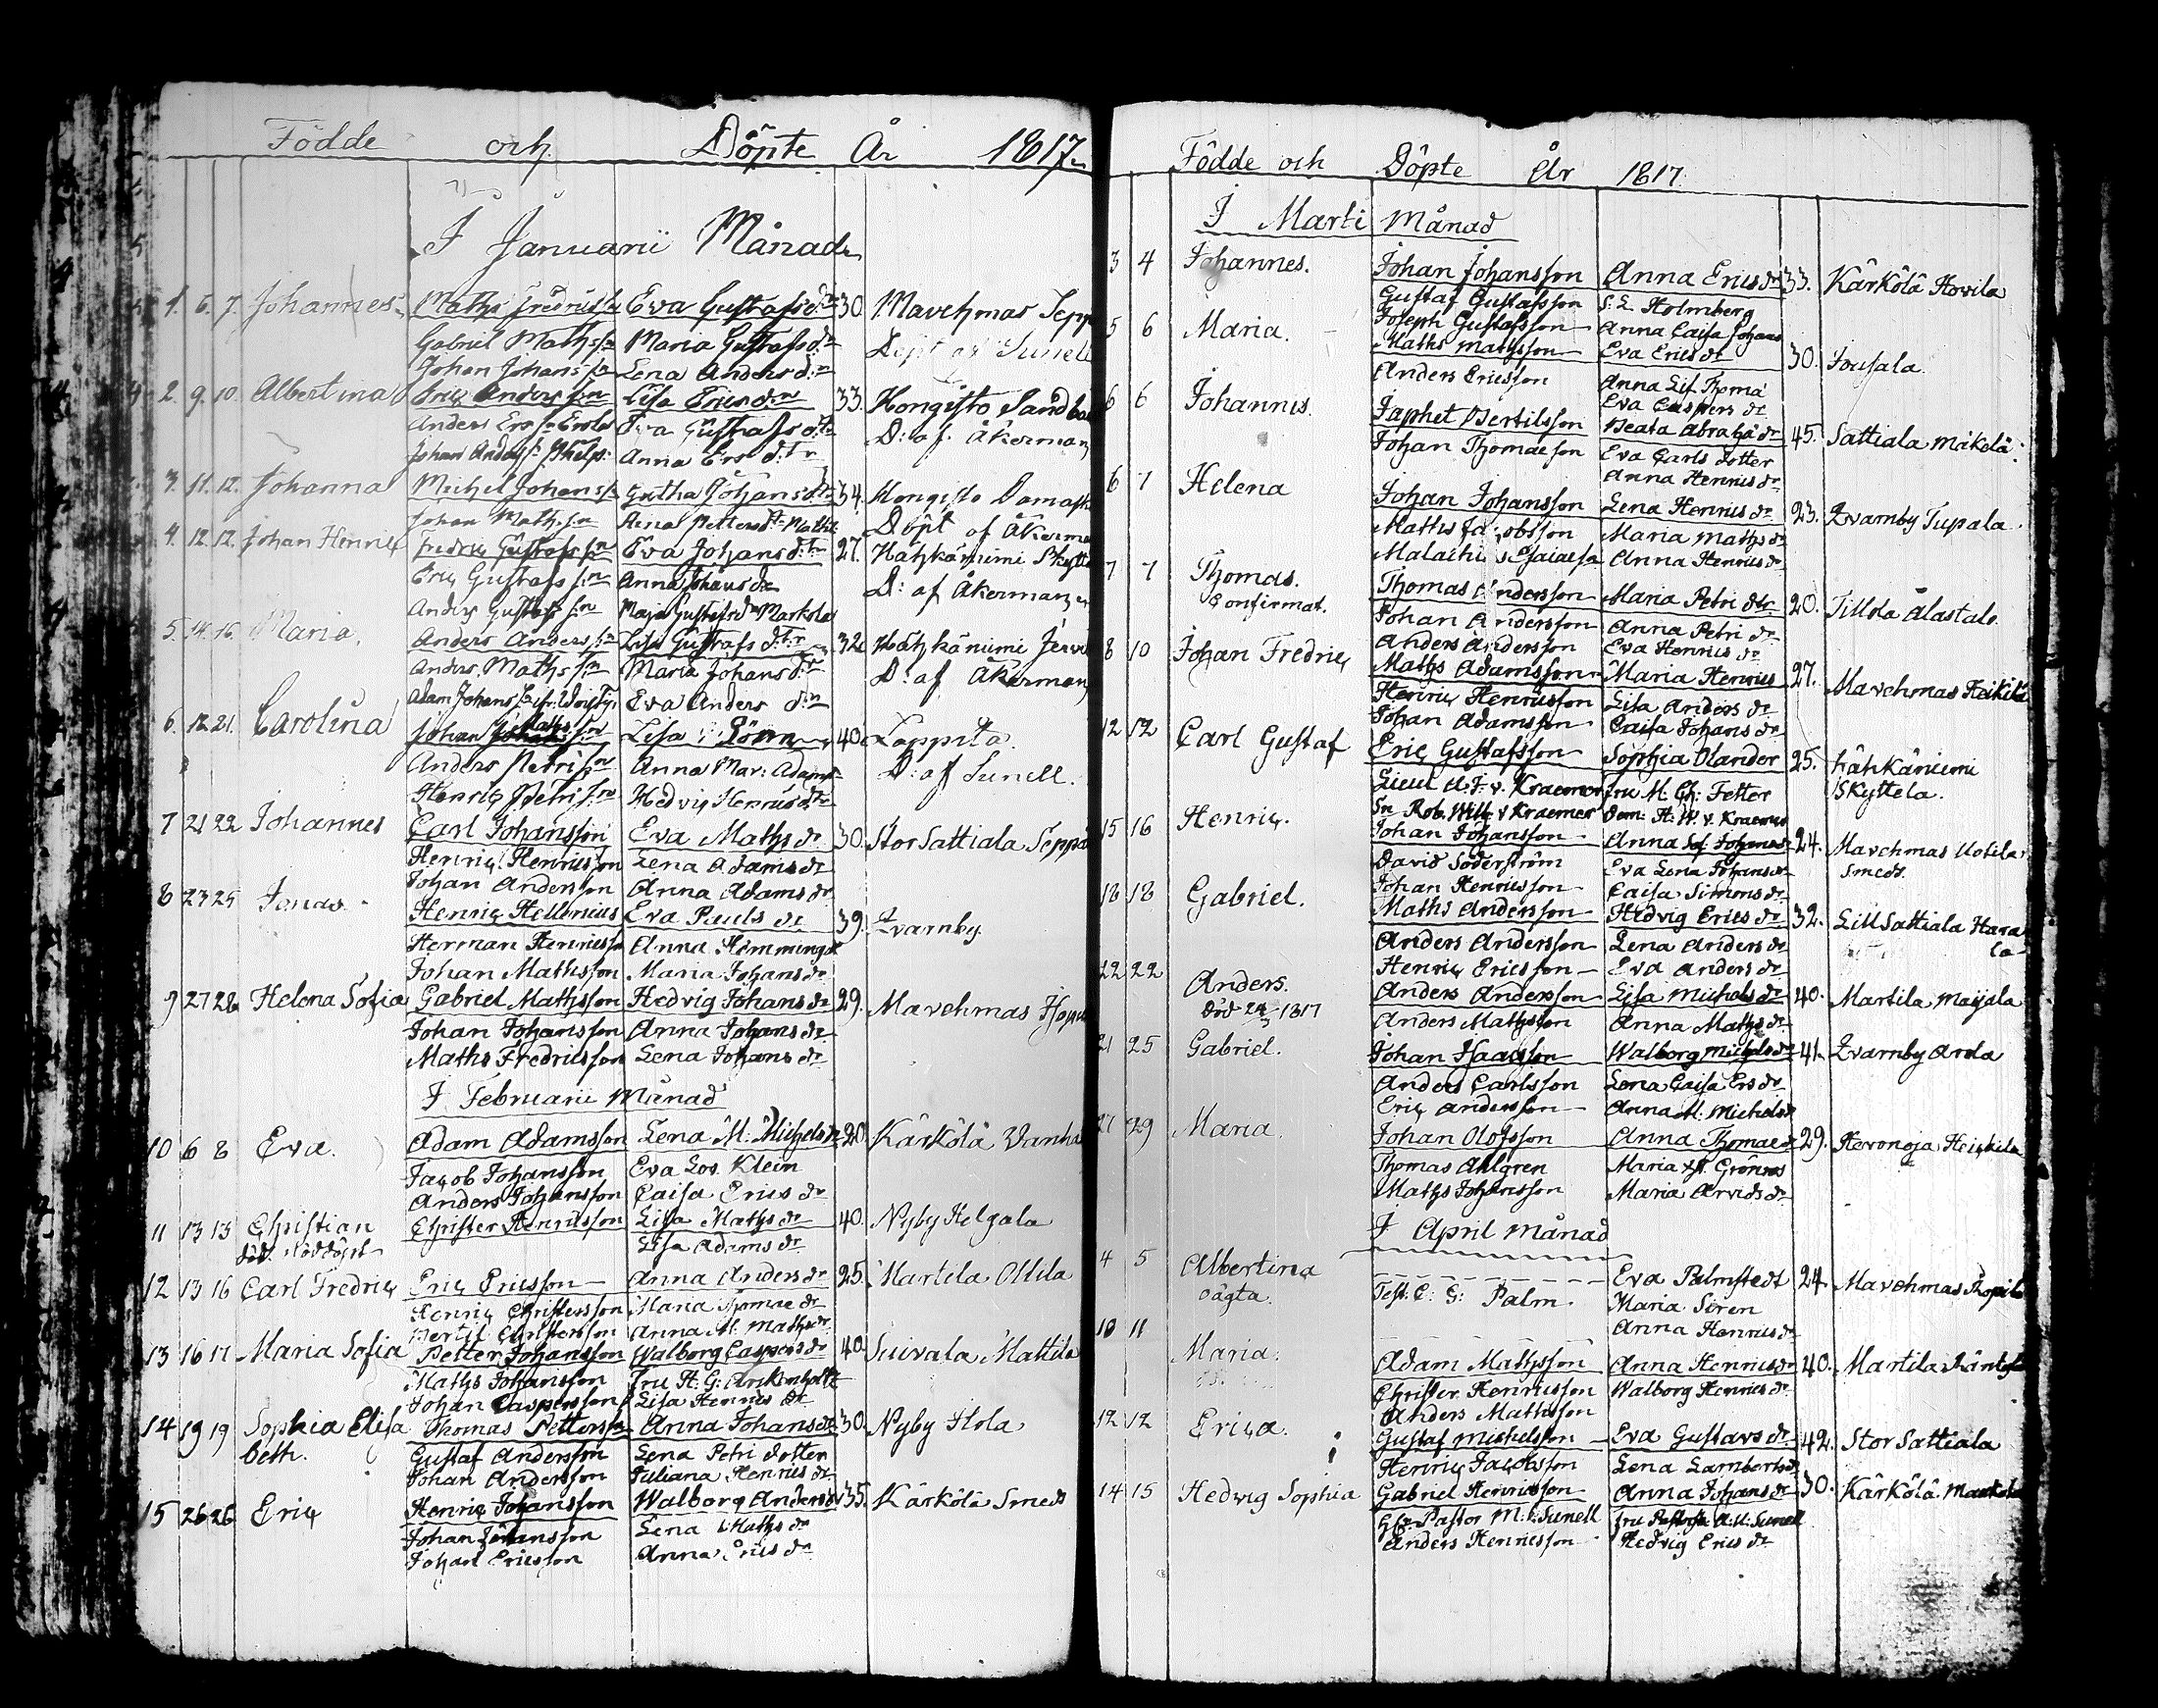 Födde och Döpte År 1817.
I Januarii Månad
1. 6. 7. Johannes Maths Fredricss:n Eva Gustafs d:tr 30. Mavehmas Sepp
Gabriel Maths s:n Maria Gustafs d:r Döpt af Sunell
Johan Johans s:n Lena Anders d:r
2. 9. 10. Albertina Eric Anders son Lisa Erics d:r 33. Hongisto Sandba
Anders Ers s:n Eva Gustafs d:tr D: af Åkerman
Johan Anders s: Anna Ers d:tr
3. 11. 12. Johanna Michel Johans s:n Johans d:tr 34. Hongisto
Johan Maths s:n Petters d:r Döpt af Åkerma
4. 12. 12. Johan Henric Fredric Gustafs s:n Eva Johans d:tr 27. Hähkäniemi Skytte
Eric Gustafs s:n Anna Johans dr D: af Åkerman
Anders Gustafs s:n Maja Gustafs dr Markola
5. 14. 16. Maria Anders Anders s:n Lisa Gustafs d:tr 32 Hähkäniemi
Anders Maths s:n Maria Johans d:r D: af Åkerman
Adam Johans s: Eva Anders d:r
6. 18. 21. Carolina Johan Maths son Lisa Lönn 40. Lappila
Anders Petri s:n Anna Mar: Adams D: af Sunell.
Henric Petri s:n Hedvig Henrics d:r
7 21 22 Johannes Carl Johansson Eva Maths dr 30. Stor Sattiala Seppä
Henric Henricsson Lena Adams dr
Johan Andersson Anna Adams dr
8 23 25 Jonas Henric Hellenius Eva Pauls dr 39. Qvarnby
Herman Henricsson Anna Hemmings dr
Johan Mathsson Maria Johans dr
9 27 28 Helena Sofia Gabriel Mathsson Hedvig Johans dr 29. Mavehmas
Johan Johansson Anna Johans dr
Maths Fredricsson Lena Johans dr
I Februarii Månad
10 6 8 Eva. Adam Adamsson Lena M: Michels dr 20. Kärkölä Vanha
Jacob Johansson Eva Lov. Klein
Anders Johansson Caisa Erics dr
11 13 13 Christian Christer Henricsson Lisa Maths dr 40. Nyby Helgala
död. nöddöpt Lisa Adams dr
12 13 16 Carl Fredric Eric Ericsson Anna Anders dr 25. Martela Ollila
Henric Christersson Maria Thomae dr
Bertil Christersson Anna M. Maths dr
13 16 17 Maria Sofia Petter Johansson Walborg Caspers dr 40. Suivala Mattila
Maths Johansson Fru H: G: Arckenholtz
Johan Caspersson Lisa Henrics dr
14 19 19 Sophia Elisa Thomas Petterson Anna Johans dr 30. Nyby Ilola
beth. Gustaf Andersson Lena Petri dotter
Johan Andersson Juliana Henrics dr
15 26 26 Eric Henric Johansson Walborg Anders dr 35. Kärkölä Smeds
Johan Johansson Lena Maths dr
Johan Ericsson Anna Erics dr
Födde och Döpte År 1817.
I Marti Månad
3 4 Johannes. Johan Johansson Anna Erics dr 33. Kärkölä Hovila
Gustaf Gustafsson S. L. Holmberg
Joseph Gustafsson Anna Caisa Johans
5 6 Maria. Maths Mathsson Eva Erics dr 30. Jousala.
Anders Ericsson Anna Lis. Thoma
Eva Caspers dr
6 6 Johannis. Japhet Bertilsson Beata Abrahã dr 45. Sattiala Mäkelä.
Johan Thomaeson Eva Carls dotter
Anna Henrics dr
6 7 Helena Johan Johansson Lena Henrics dr 23. Qvarnby Tupala.
Maths Jacobsson Maria Maths dr
Malachias Esaiaeson Anna Henrics dr
7 7 Thomas. Thomas Andersson Maria Petri dtr 20. Tillola Alastalo.
Confirmat. Johan Andersson Anna Petri dr
Anders Andersson Eva Henrics dr
8 10 Johan Fredric Maths Adamsson Maria Henrics 27. Mavehmas Heikkilä
Henric Henricsson Lisa Anders dr
Johan Adamsson Caisa Johans dr
12 12 Carl Gustaf Eric Gustafsson Sophia Olander 25. Hähkäniemi
Lieut. A. F. v. Kraemer Fru M. Ch: Fetter Skyttela.
Hr Rob. Wilh. v Kraemer Dem: H: W. v. Kraemer
15 16 Henric. Johan Johansson Anna Sof. Johans dr 24. Mavehmas Uotila
David Söderström Eva Lena Johans dr Smeds.
Johan Henricsson Caisa Simons dr
18 18 Gabriel. Maths Andersson Hedvig Erics dr 32. Lill Sattiala Hara
Anders Andersson Lena Anders dr la
Henric Ericsson Eva Anders dr
22 22 Anders. Anders Andersson Lisa Michels dr 40. Martila Maijala
Död 24/3 1817 Anders Mathsson Anna Maths dr
21 25 Gabriel. Johan Isaacsson Walborg Michels dr 41. Qvarnby Arola
Anders Carlsson Lena Caisa Ers dr
Eric Andersson Anna M. Michels dr
27 29 Maria. Johan Olofsson Anna Thomae dr 29. Hevonoja Heickila
Thomas Ahlgren Maria Grönroos
Maths Johansson Maria Arvids dr
I April Månad
4 5 Albertina Eva Palmstedt 24. Mavehmas
oägta. Test: C: G: Palm. Maria Siren
Anna Henrics dr
10 11 Maria. Adam Mathsson Anna Henrics dr 40. Martila Mäntylä
Christer Henricsson Walborg Henrics dr
Anders Mathsson
12 12 Erica. Gustaf Michelsson Eva Gustavs dr 42. Stor Sattiala
Henric Jacobsson Lena Lamberts dr
14 15 Hedvig Sophia Gabriel Henricsson Anna Johans dr 30. Kärkölä
Pastor M: Sunell Fru Pastorskan A. U. Sunell
Anders Henricsson Hedvig Erics dr